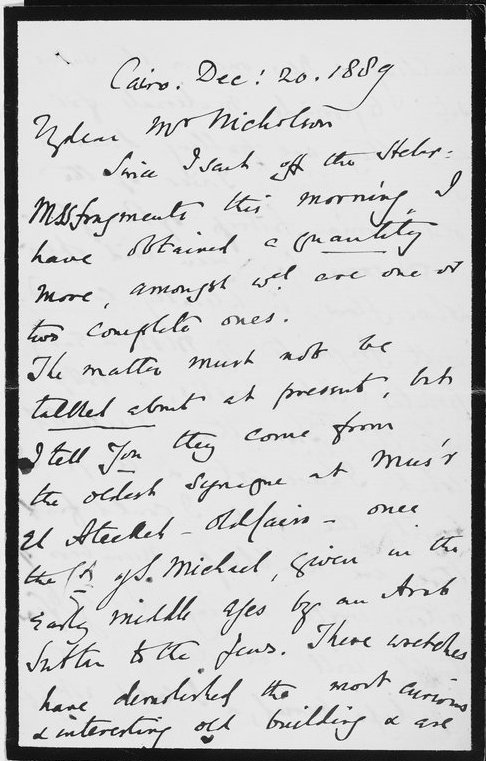 Cairo. Dec: 20. 1889
My dear Mr Nicholson
Since I sent off the Hebr:
MSS fragments this morning, I
have obtained a quantity
more, amongst wh. are one or
two complete ones.
The matter must not be
talked about at present, but
I tell you they come from
the oldest Synague at Mus'r
El Ateekeh - Old Cairo - once
the Ch of S. Michael, given in the
early middle ages by an Arab
Sultan to the Jews. These wretches
have demolished the most curious
& interesting old building & are